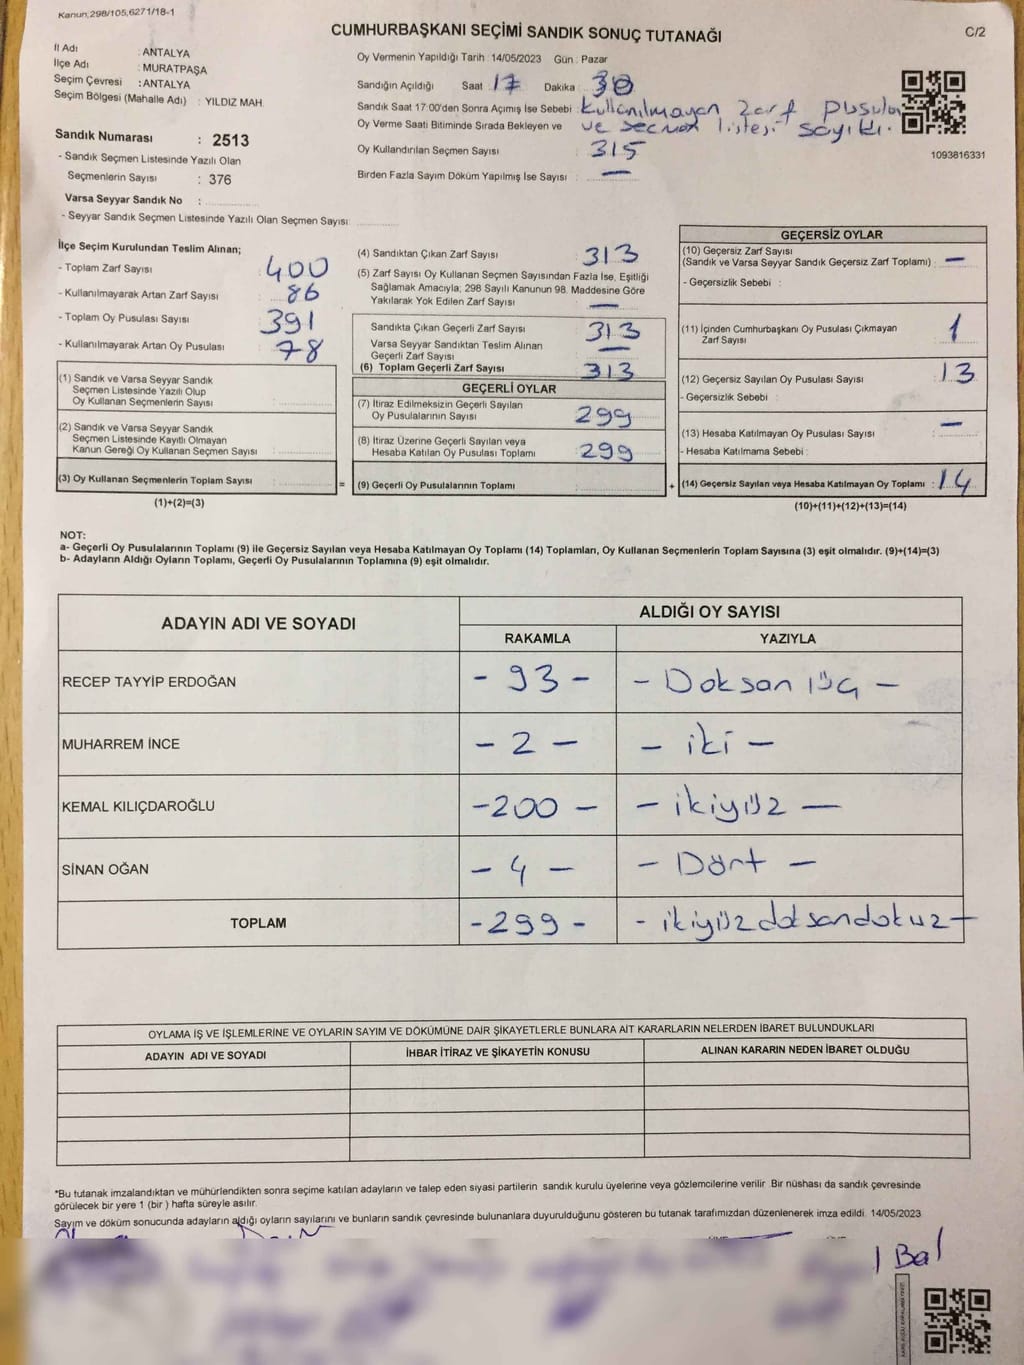 Kanun,298/105,6271/18-1
CUMHURBAŞKANI SEÇİMİ SANDIK SONUÇ TUTANAĞI
C/2
İl Adı : ANTALYA
İlçe Adı : MURATPAŞA
Seçim Çevresi : ANTALYA
Seçim Bölgesi (Mahalle Adı) : YILDIZ MAH.
Sandık Numarası : 2513
- Sandık Seçmen Listesinde Yazılı Olan
Seçmenlerin Sayısı : 376
Varsa Seyyar Sandık No :
- Seyyar Sandık Seçmen Listesinde Yazılı Olan Seçmen Sayısı:
Oy Vermenin Yapıldığı Tarih : 14/05/2023 Gün : Pazar
Sandığın Açıldığı Saat : 17 Dakika : 30
Sandık Saat 17:00'den Sonra Açımış İse Sebebi : Kullanılmayan zarf pusula
Oy Verme Saati Bitiminde Sırada Bekleyen ve ve secmen listesi sayıldı.
Oy Kullandırılan Seçmen Sayısı : 315
Birden Fazla Sayım Döküm Yapılmış İse Sayısı : —
1093816331
İlçe Seçim Kurulundan Teslim Alınan;
- Toplam Zarf Sayısı : 400
- Kullanılmayarak Artan Zarf Sayısı : 86
- Toplam Oy Pusulası Sayısı : 391
- Kullanılmayarak Artan Oy Pusulası : 78
(1) Sandık ve Varsa Seyyar Sandık
Seçmen Listesinde Yazılı Olup
Oy Kullanan Seçmenlerin Sayısı :
(2) Sandık ve Varsa Seyyar Sandık
Seçmen Listesinde Kayıtlı Olmayan
Kanun Gereği Oy Kullanan Seçmen Sayısı :
(3) Oy Kullanan Seçmenlerin Toplam Sayısı :
(1)+(2)=(3)
(4) Sandıktan Çıkan Zarf Sayısı : 313
(5) Zarf Sayısı Oy Kullanan Seçmen Sayısından Fazla İse, Eşitliği
Sağlamak Amacıyla; 298 Sayılı Kanunun 98. Maddesine Göre
Yakılarak Yok Edilen Zarf Sayısı : —
Sandıkta Çıkan Geçerli Zarf Sayısı : 313
Varsa Seyyar Sandıktan Teslim Alınan
Geçerli Zarf Sayısı : —
(6) Toplam Geçerli Zarf Sayısı : 313
GEÇERLİ OYLAR
(7) İtiraz Edilmeksizin Geçerli Sayılan
Oy Pusulalarının Sayısı : 299
(8) İtiraz Üzerine Geçerli Sayılan veya
Hesaba Katılan Oy Pusulası Toplamı : 299
= (9) Geçerli Oy Pusulalarının Toplamı :
GEÇERSİZ OYLAR
(10) Geçersiz Zarf Sayısı
(Sandık ve Varsa Seyyar Sandık Geçersiz Zarf Toplamı) : —
- Geçersizlik Sebebi :
(11) İçinden Cumhurbaşkanı Oy Pusulası Çıkmayan
Zarf Sayısı : 1
(12) Geçersiz Sayılan Oy Pusulası Sayısı : 13
- Geçersizlik Sebebi :
(13) Hesaba Katılmayan Oy Pusulası Sayısı : —
- Hesaba Katılmama Sebebi :
+ (14) Geçersiz Sayılan veya Hesaba Katılmayan Oy Toplamı : 14
(10)+(11)+(12)+(13)=(14)
NOT:
a- Geçerli Oy Pusulalarının Toplamı (9) ile Geçersiz Sayılan veya Hesaba Katılmayan Oy Toplamı (14) Toplamları, Oy Kullanan Seçmenlerin Toplam Sayısına (3) eşit olmalıdır. (9)+(14)=(3)
b- Adayların Aldığı Oyların Toplamı, Geçerli Oy Pusulalarının Toplamına (9) eşit olmalıdır.
ADAYIN ADI VE SOYADI
ALDIĞI OY SAYISI
RAKAMLA YAZIYLA
RECEP TAYYİP ERDOĞAN - 93 - - Doksan üç -
MUHARREM İNCE - 2 - - iki -
KEMAL KILIÇDAROĞLU - 200 - - ikiyüz -
SİNAN OĞAN - 4 - - Dört -
TOPLAM - 299 - - ikiyüzdoksandokuz -
OYLAMA İŞ VE İŞLEMLERİNE VE OYLARIN SAYIM VE DÖKÜMÜNE DAİR ŞİKAYETLERLE BUNLARA AİT KARARLARIN NELERDEN İBARET BULUNDUKLARI
ADAYIN ADI VE SOYADI İHBAR İTİRAZ VE ŞİKAYETİN KONUSU ALINAN KARARIN NEDEN İBARET OLDUĞU
*Bu tutanak imzalandıktan ve mühürlendikten sonra seçime katılan adayların ve talep eden siyasi partilerin sandık kurulu üyelerine veya gözlemcilerine verilir. Bir nüshası da sandık çevresinde
görülecek bir yere 1 (bir) hafta süreyle asılır.
Sayım ve döküm sonucunda adayların aldığı oyların sayılarını ve bunların sandık çevresinde bulunanlara duyurulduğunu gösteren bu tutanak tarafımızdan düzenlenerek imza edildi. 14/05/2023